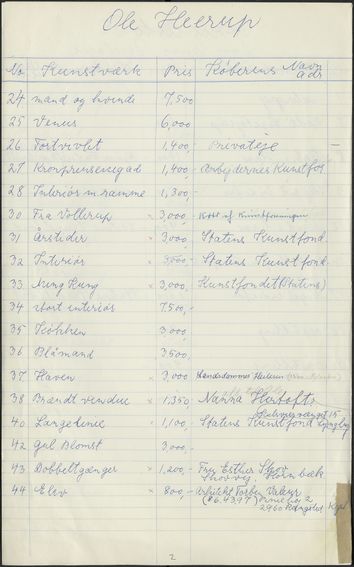 Ole Heerup
No Kunstværk Pris Køberens Navn
adr
24 mand og kvinde 7,500
25 Venus 6,000
26 Tortvivlet 1,400,- Privateje -
27 Kronprinsessegade 1,400,- Arbejdernes Kunstfor.
28 Interiør m ramme 1,300,-
30 Fra Vollerup × 3,000,- Købt af Kunstforeningen
31 Årstider × 3,000,- Statens Kunstfond
32 Interiør × 3,000,- Statens Kunstfond
33 Kung × 3,000 Kunstfondet (Statens)
34 stort interiør 7,500,-
35 3,000,-
36 Blåmand 3,500
37 Haven × 3,000
38 Brændt vindue × 1,350,- Nanna Hertoft
15
40 Langelinie × 1,100,- Statens Kunstfond Lyngby
42 Gul Blomst 3,000,-
43 Dobbeltgænger × 1,200,- Fru Esther Skov
Skovvej. Hornbæk
44 Elev × 800,- Arkitekt Torben Valeur
2
2960 Rungsted Kyst
2